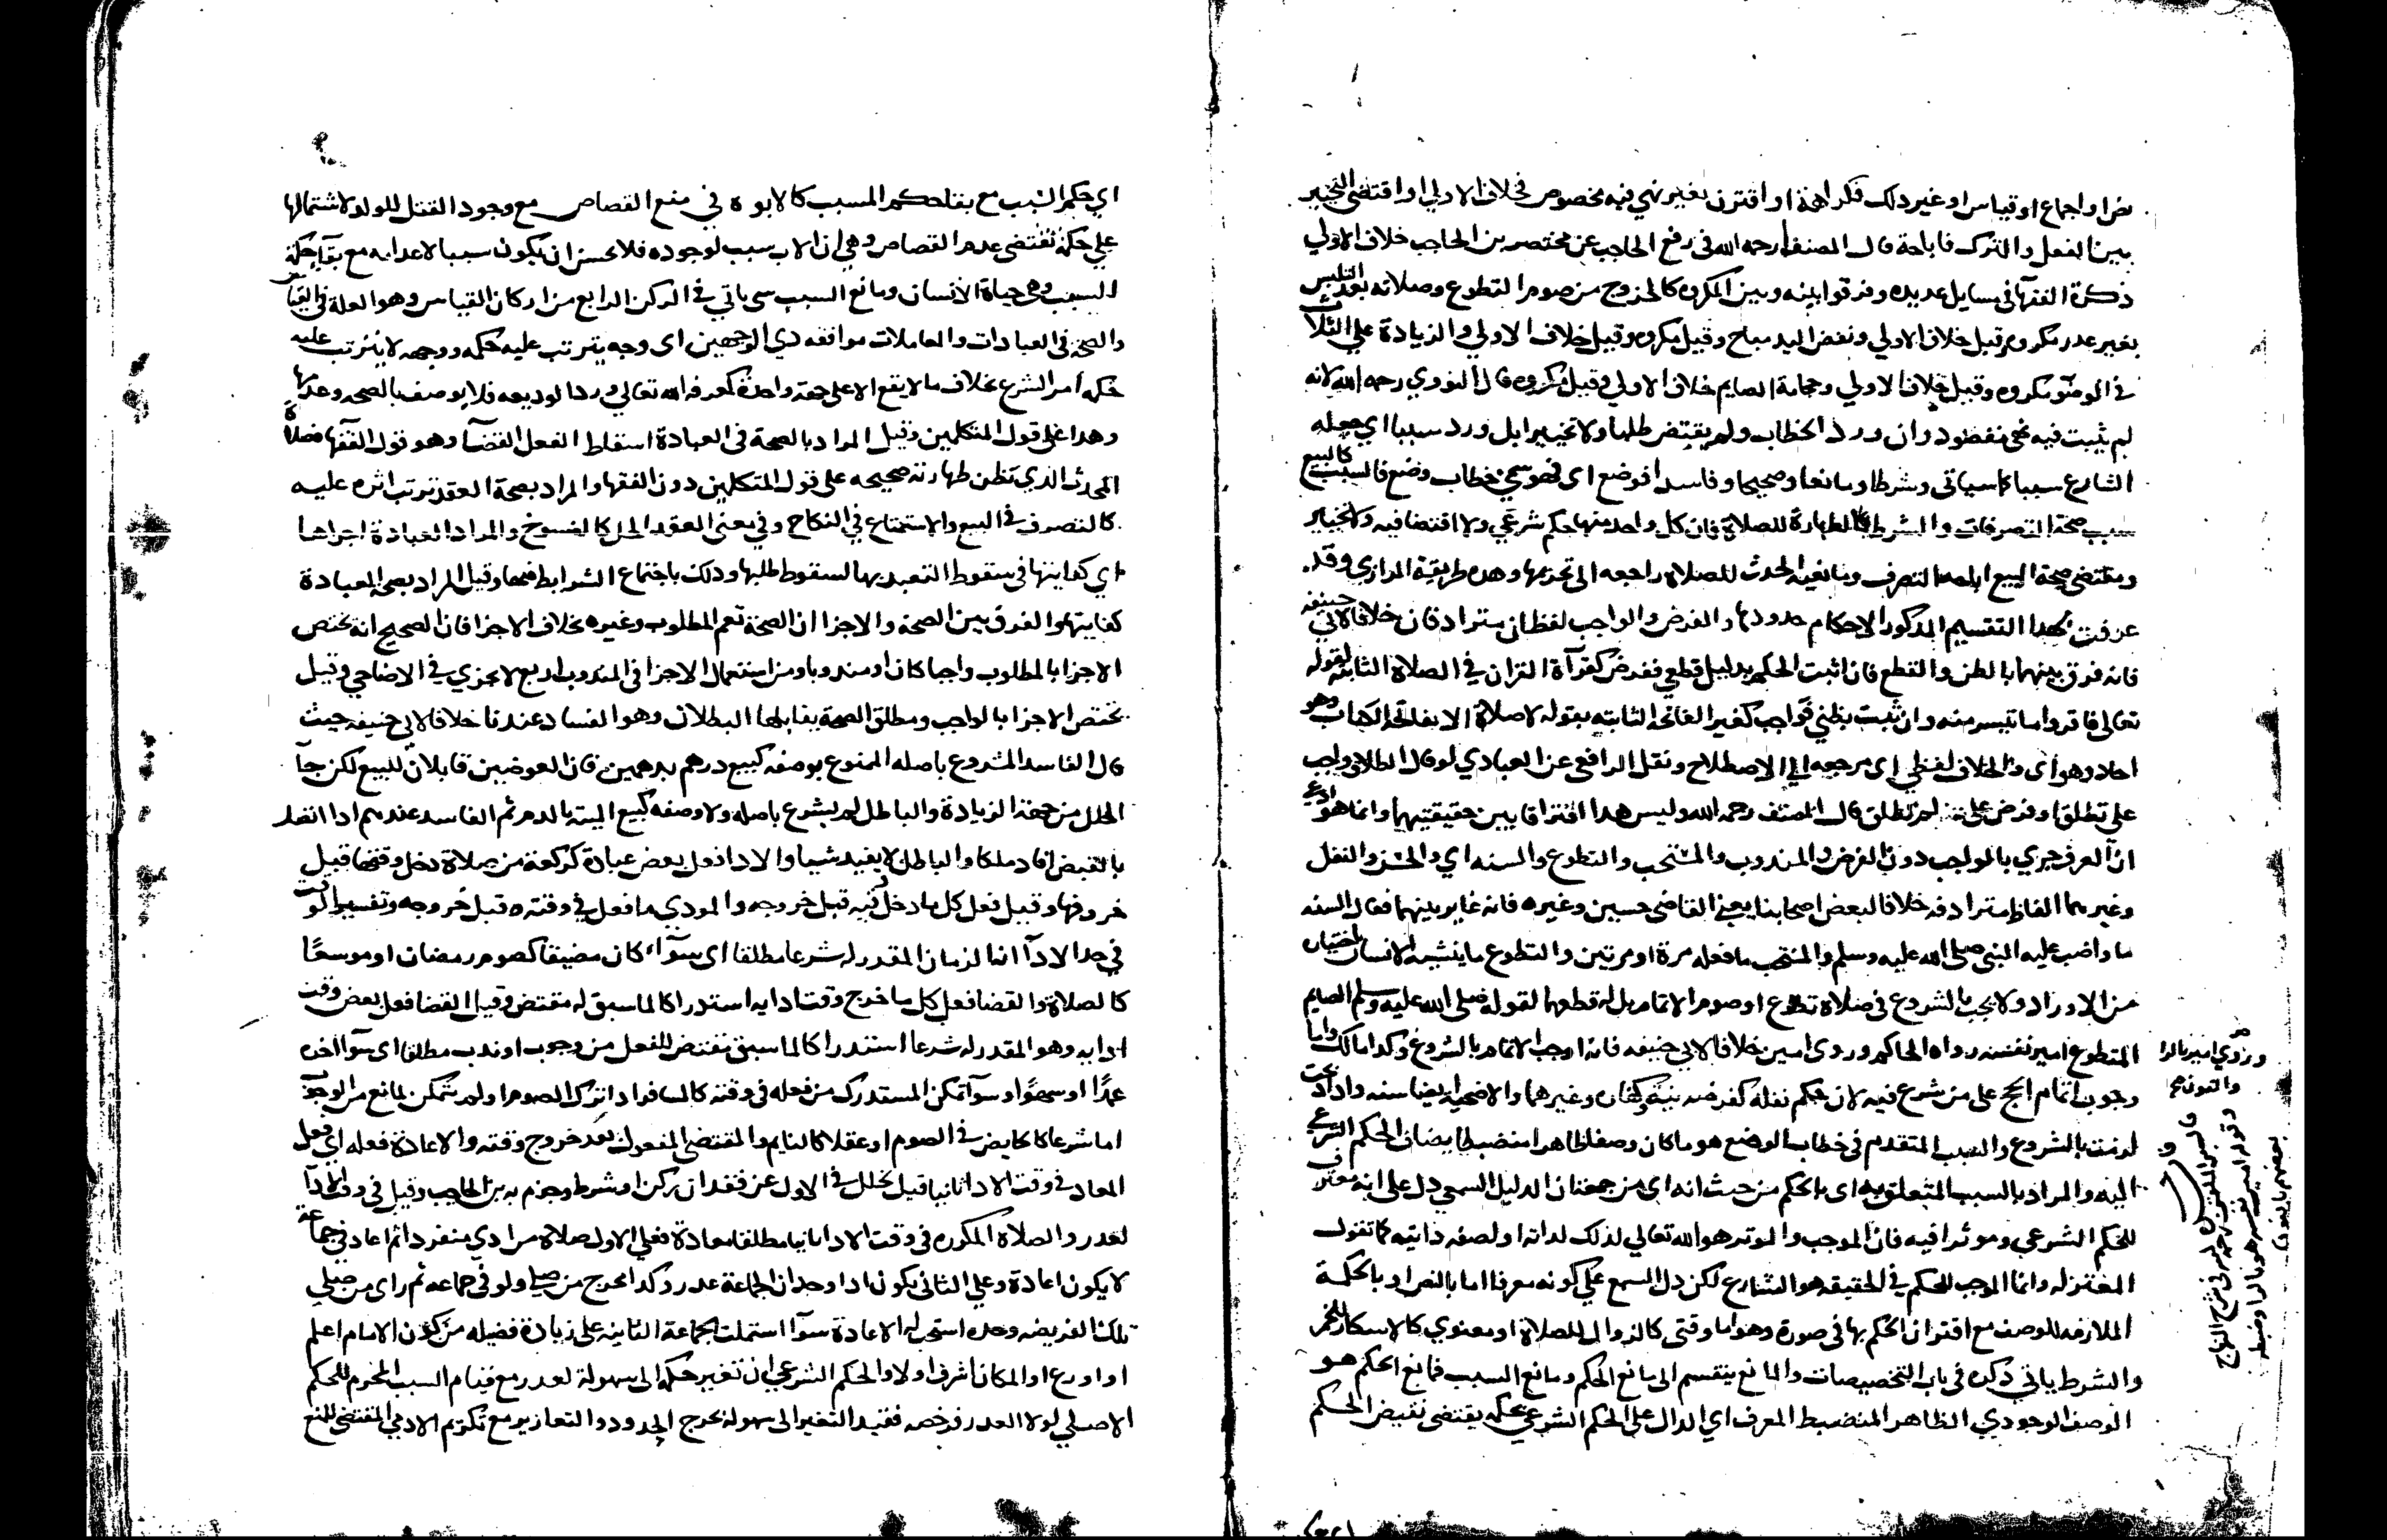 نص او اجماع او قياس او غير ذلك فكراهة او اقترن بغير نهي فيه مخصوص فخلاف الاولي او اقتضي التخيير
بين الفعل والترك فاباحة قال المصنف رحمه الله في رفع الحاجب عن مختصر بن الحاجب خلاف الاولي
ذكره الفقها في مسايل عديده وفرقوا بينه وبين المكروه كالخروج من صوم التطوع وصلاته بعد التلبس
بغير عذر مكروه وقيل خلاف الاولي ونفض اليد مباح وقيل مكروه وقيل خلاف الاولي والزيادة علي الثلاث
في الوضو مكروه وقيل خلاف الاولي وحجامة الصايم خلاف الاولي وقيل مكروه قال النووي رحمه الله لانه
لم يثبت فيه نهي مقصود وان ورد الخطاب ولم يقتض طلبا ولا تخييرا بل ورد سببا اي جعله
الشارع سببا كما سياتي وشرطا ومانعا وصحيحا وفاسدا فوضع اي فهو سمي خطاب وضع فالسبب كالبيع
سبب صحة التصرفات والشرط كالطهارة للصلاة فان كل واحد منها حكم شرعي ولا اقتضا فيه ولا تخيير
ومقتضي صحة البيع اباحة التصرف ومانعية الحدث للصلاة راجعه الى تحريمها وهذه طريقة الرازي وقد
عرفت بهذا التقسيم المذكور الاحكام حدودها والفرض والواجب لفظان مترادفان خلافا لابي حنيفه
فانه فرق بينهما بالظن والقطع فان اثبت الحكم بدليل قطعي ففرض كقراة القران في الصلاة الثابتة لقوله
تعالى فاقروا ما تيسر منه وان ثبت بظني فواجب كغير الفاتحه الثابته بقوله لا صلاة الا بفاتحة الكتاب وهو
احاد وهو اي والخلاف لفظي اي مرجعه الي الاصطلاح ونقل الرافعي عن العبادي لو قال الطلاق واجب
علي تطلق او فرض علي لم تطلق قال المصنف رحمه الله وليس هذا افتراقا بين حقيقتيهما وانما هو ادعي
ان العرف جري بالواجب دون الفرض والمندوب والمستحب والتطوع والسنه اي والحسن والنفل
وغيرهما الفاظ مترادفه خلافا لبعض اصحابنا يعني القاضي حسين وغيره فانه غاير بينهما فقال السنه
ما واضب عليه النبي صلى الله عليه وسلم والمستحب ما فعله مرة او مرتين والتطوع ما ينشيه الانسان باختياره
من الاوراد ولا يجب بالشروع في صلاة تطوع او صوم الاتمام بل له قطعهما لقوله صلى الله عليه وسلم الصايم
المتطوع امير نفسه رواه الحاكم وروى امين خلافا لابي حنيفه فانه اوجب الاتمام بالشروع وكذا مالك واما
وجوب اتمام الحج على من شرع فيه لان حكم نفله كفرضه نية وكفارة وغيرهما والاضحية ايضا سنه واذا ذبحت
لزمت بالشروع والسبب المتقدم في خطاب الوضع هو ما كان وصفا ظاهرا منضبطا يضاف الحكم الشرعي
اليه والمراد بالسبب المتعلق به اي بالحكم من حيث انه اي من جهة ان الدليل السمعي دل على انه معرف
للحكم الشرعي وموثرا فيه فان الموجب والموثر هو الله تعالي لذلك لذاته او لصفه ذاتيه كما تقول
المعتزله وانما الموجب للحكم في الحقيقه هو الشارع لكن دل السمع علي كونه معرفا اما بالنص او بالحكمة
الملازمه للوصف مع اقتران الحكم بها في صورة وهو اما وقتي كالزوال للصلاة او معنوي كالاسكار للخمر
والشرط ياتي ذكره في باب التخصيصات والمانع ينقسم الى مانع الحكم ومانع السبب فمانع الحكم هو
الوصف الوجودي الظاهر المنضبط المعرف اي الدال على الحكم الشرعي بحكمه يقتضي نقيض الحكم
وروي امير بالرا
والنون
قال الملقن رحمه في شرح المنهاج
وقوله امير نفسه هو بالرا وضبطه
بعضهم بالنون
اي حكم السبب مع بقا حكم المسبب كالابوة في منع القصاص مع وجود القتل للولد لاشتمالها
علي حكمة تقتضي عدم القصاص وهي ان الاب سبب لوجوده فلا يحسن ان يكون سببا لاعدامه مع بقا حكمة
السبب وهي حياة الانسان ومانع السبب سياتي في الركن الرابع من اركان القياس وهو العلة في القياس
والصحة في العبادات والمعاملات موافقه ذي الوجهين اي وجه يترتب عليه حكمه ووجه لا يترتب عليه
حكمه امر الشرع بخلاف ما لا يقع الا على جهة واحدة كمعرفه الله تعالي ورد الوديعه فلا يوصف بالصحه وعدمها
وهذا على قول المتكلمين وقيل المراد بالصحة في العبادة اسقاط الفعل القضا وهو قول الفقها فصلاة
المحدث الذي يظن طهارته صحيحه على قول المتكلمين دون الفقها والمراد بصحة العقد ترتب اثره عليه
كالتصرف في البيع والاستمتاع في النكاح وفي معنى العقد الحل كالفسوخ والمراد العبادة اجزاها
اي كفايتها في سقوط التعبد بها لسقوط طلبها وذلك باجتماع الشرايط فيها وقيل المراد بصحة العبادة
كفايتها والفرق بين الصحه والاجزا ان الصحة تعم المطلوب وغيره بخلاف الاجزا فان الصحيح انه يختص
الاجزا بالمطلوب واجبا كان او مندوبا ومن استعمال الاجزا في المندوب اربع لا تجزي في الاضاحي وقيل
يختص الاجزا بالواجب ومطلق الصحة يقابلها البطلان وهو الفساد عندنا خلافا لابي حنيفه حيث
قال الفاسد المشروع باصله الممنوع بوصفه كبيع درهم بدرهمين فان العوضين قابلان للبيع لكن جآ
الخلل من جهة الزيادة والباطل لم يشرع باصله ولا وصفه كبيع الميتة بالدم ثم الفاسد عندهم اذا اتصل
بالقبض افاد ملكا والباطل لا يفيد شيا والادا فعل بعض عبادة كركعة من صلاة دخل وقتها قبل
خروجها وقيل فعل كل ما دخل وقته قبل خروجه والمودي ما فعل في وقته قبل خروجه وتفسير الوقت
في حد الادا انه الزمان المقدر له شرعا مطلقا اي سوآء كان مضيقا كصوم رمضان او موسعا
كالصلاة والقضا فعل كل ما خرج وقت ادايه استدراكا لما سبق له مقتض وقيل القضا فعل بعض وقت
ادايه وهو المقدر له شرعا استدراكا لما سبق مقتض للفعل من وجوب او ندب مطلقا اي سوآ اخره
عمدًا او سهوًا وسوآ تمكن المستدرك من فعله في وقته كالمسافر اذا ترك الصوم او لم يتمكن لمانع من الوجوب
اما شرعا كالحايض في الصوم او عقلا كالنايم والمقتضي المفعول بعد خروج وقته والاعادة فعله اي فعل
المعاد في وقت الادا ثانيا قيل لخلل في الاول عن فقدان ركن او شرط وجزم به بن الحاجب وقيل في وقت الادآ
لعذر والصلاة المكرره في وقت الادا ثانيا مطلقا معادة فعلي الاول صلاة مرادي منفردا ثم اعاد في جماعة
لا يكون اعادة وعلي الثاني يكون اذا وجدان الجماعة عذر وكذا تخرج من صلي ولو في جماعه ثم راى من يصلي
تلك الفريضه وحده استحب له الاعادة سوآ اشتملت الجماعة الثانيه على زيادة فضيله من كون الامام اعلم
او اورع او المكان اشرف او لا والحكم الشرعي ان تغير حكمه الى سهولة لعذر مع قيام السبب المحرم للحكم
الاصلي لولا العذر فرخصه فقيد التغير الى سهولة يخرج الحدود والتعازير مع تكريم الادمي المقتضي للمنع